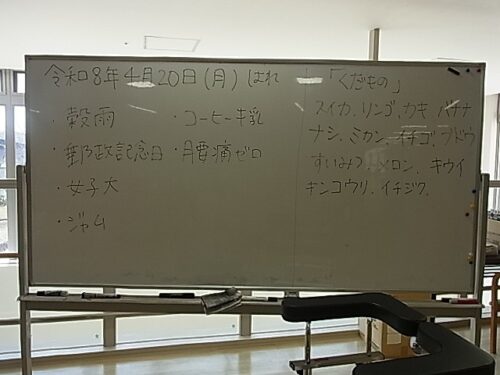 令和8年4月20日(月)はれ
・穀雨
・コーヒー牛乳
・郵政記念日
・腰痛ゼロ
・女子大
・ジャム
「くだもの」
スイカ、リンゴ、カキ、バナナ
ナシ、ミカン、イチゴ、ブドウ
すいみつ、メロン、キウイ
キンコウリ、イチジク、